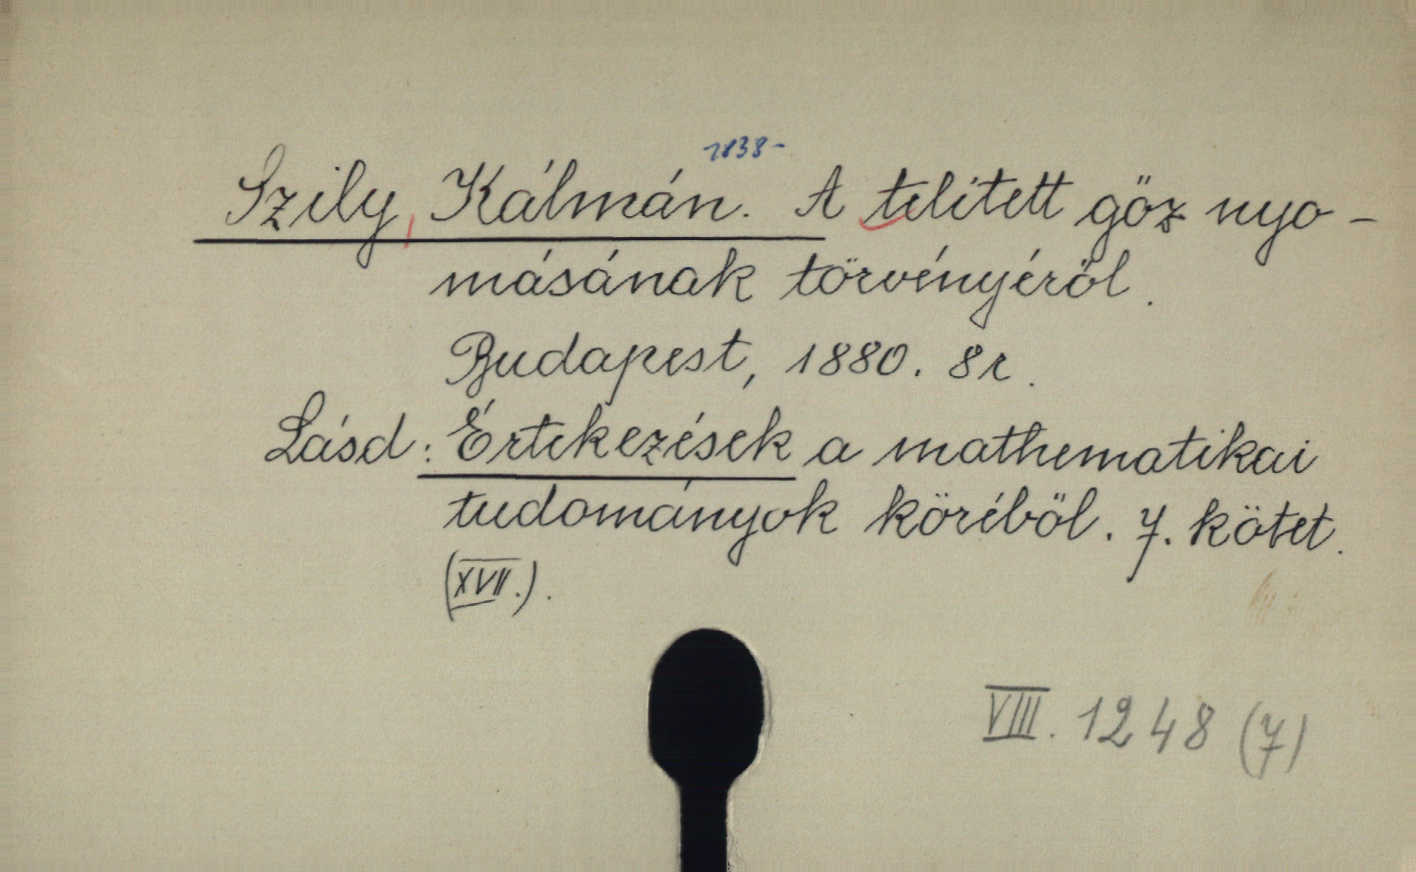 1838-
Szily, Kálmán. A telített gőz nyo-
másának törvényéről.
Budapest, 1880. 8r.
Lásd: Értekezések a mathematikai
tudományok köréből. 7. kötet.
(XVII.).
VIII. 1248 (7)